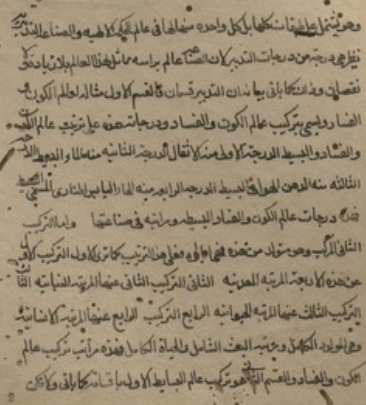 وهو يشتمل على طبقات كلها بل كل واحده منها لها في عالم الحكمة الالهيه والصناعه
نظير في درجة من درجات التدبير لان الصنعه عالم براسه مماثل لهذا العالم بلا زيادة ولا
نقصان وذلك كما ياتي بيانه ان التدبير قسمان فالقسم الاول مثاله لعالم الكون و
الفساد ويسمى بتركيب عالم الكون والفساد ودرجات هذه على ترتيب عالم الكون
والفساد والبسيط الدرجة الاولى منه الاثقال الدرجة الثانيه منه الماء البسيط
الثالثه منه الدهن الهوائي البسيط الدرجه الرابعه منه الحار اليابس الناري
فهذه درجات عالم الكون والفساد البسيطه ومراتبه في صناعتها واما التركيب
الثاني المركب وهو متولد من هذه فهي على هذا الترتيب كما ترى الاول التركيب الاول
عن هذه الاربعه المرتبه المعدنيه الثاني التركيب الثاني عنها المرتبه النباتيه
التركيب الثالث عنها المرتبه الحيوانيه الرابع التركيب الرابع عنها المرتبه الانسانيه
وهي المولود الكامل ومرتبه البعث الشامل والحياة الكامله فهذه مراتب تركيب عالم
الكون والفساد والقسم الثاني هو تركيب عالم البسايط الاول باقسامه كما ياتي